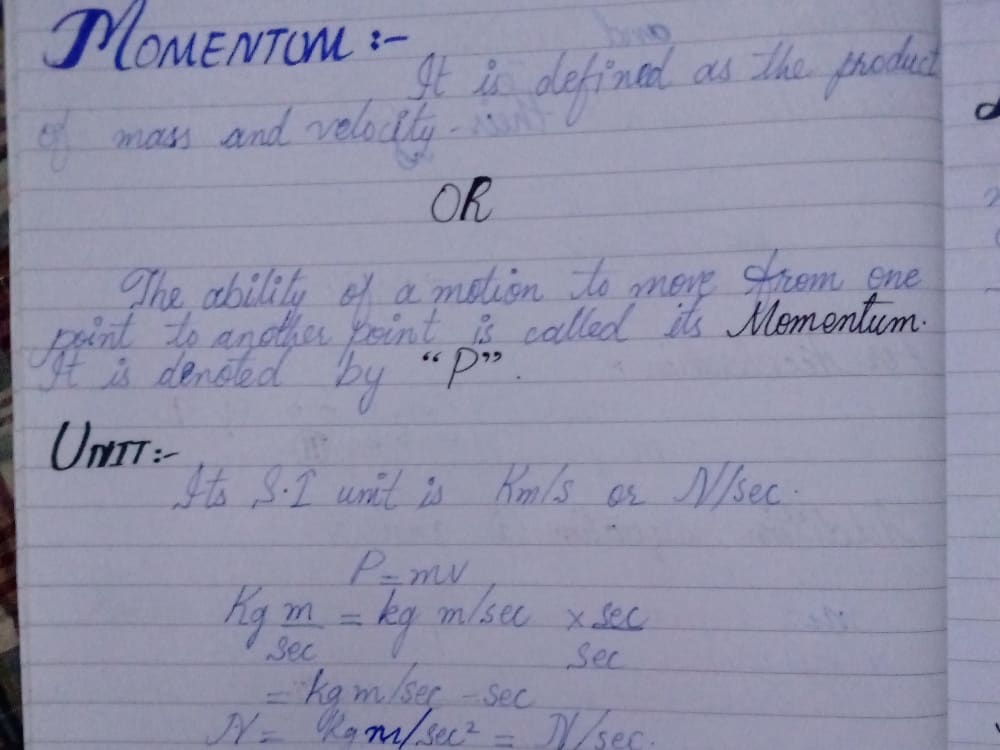 MOMENTUM :-
It is defined as the product
of mass and velocity.
OR
The ability of a motion to move from one
point to another point is called its Momentum.
It is denoted by "P".
UNIT:-
Its S.I unit is Km/s or N/sec.
P = mv
Kg m/sec = kg m/sec × sec/sec
= kg m/sec - sec
N = Kg m/sec² = N/sec.